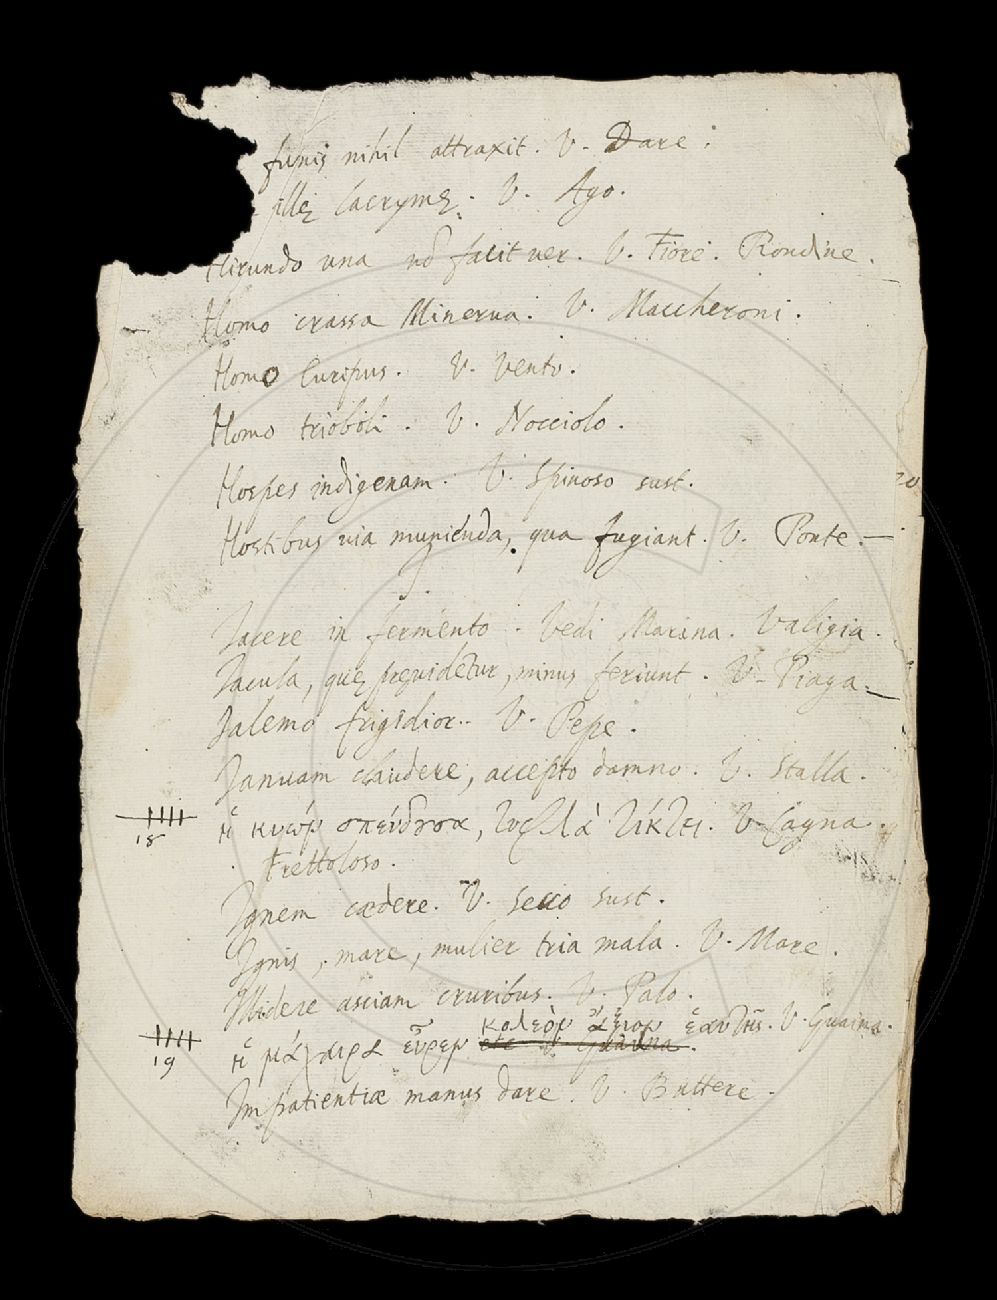 funis nihil attraxit. V. Dare.
illę lacrymę. V. Ago.
Hirundo una nō facit ver. V. Fiore. Rondine.
Homo crassa Minerva. V. Maccheroni.
Homo Euripus. V. Vento.
Homo trioboli. V. Nocciolo.
Hospes indigenam. V. Spinoso sust.
20
Hostibus via munienda, qua fugiant. V. Ponte.
Jacere in fermento. Vedi Marina. Valigia.
Jacula, quę pręvidētur, minus feriunt. V. Piaga.
Jalemo frigidior. V. Pepe.
Januam claudere, accepto damno. V. Stalla.
18 ἡ κυὼν σπεύδουσα, τυφλὰ τίκτει. V. Cagna.
Frettoloso.
Ignem cædere. V. Secco sust.
Ignis, mare, mulier tria mala. V. Mare.
Illidere asciam cruribus. V. Palo.
κολεὸν ἄξιον ἑαυτῆς. V. Guaina.
19 ἡ μάχαιρα εὗρεν etc V. Guaina.
Impatientiæ manus dare. V. Battere.